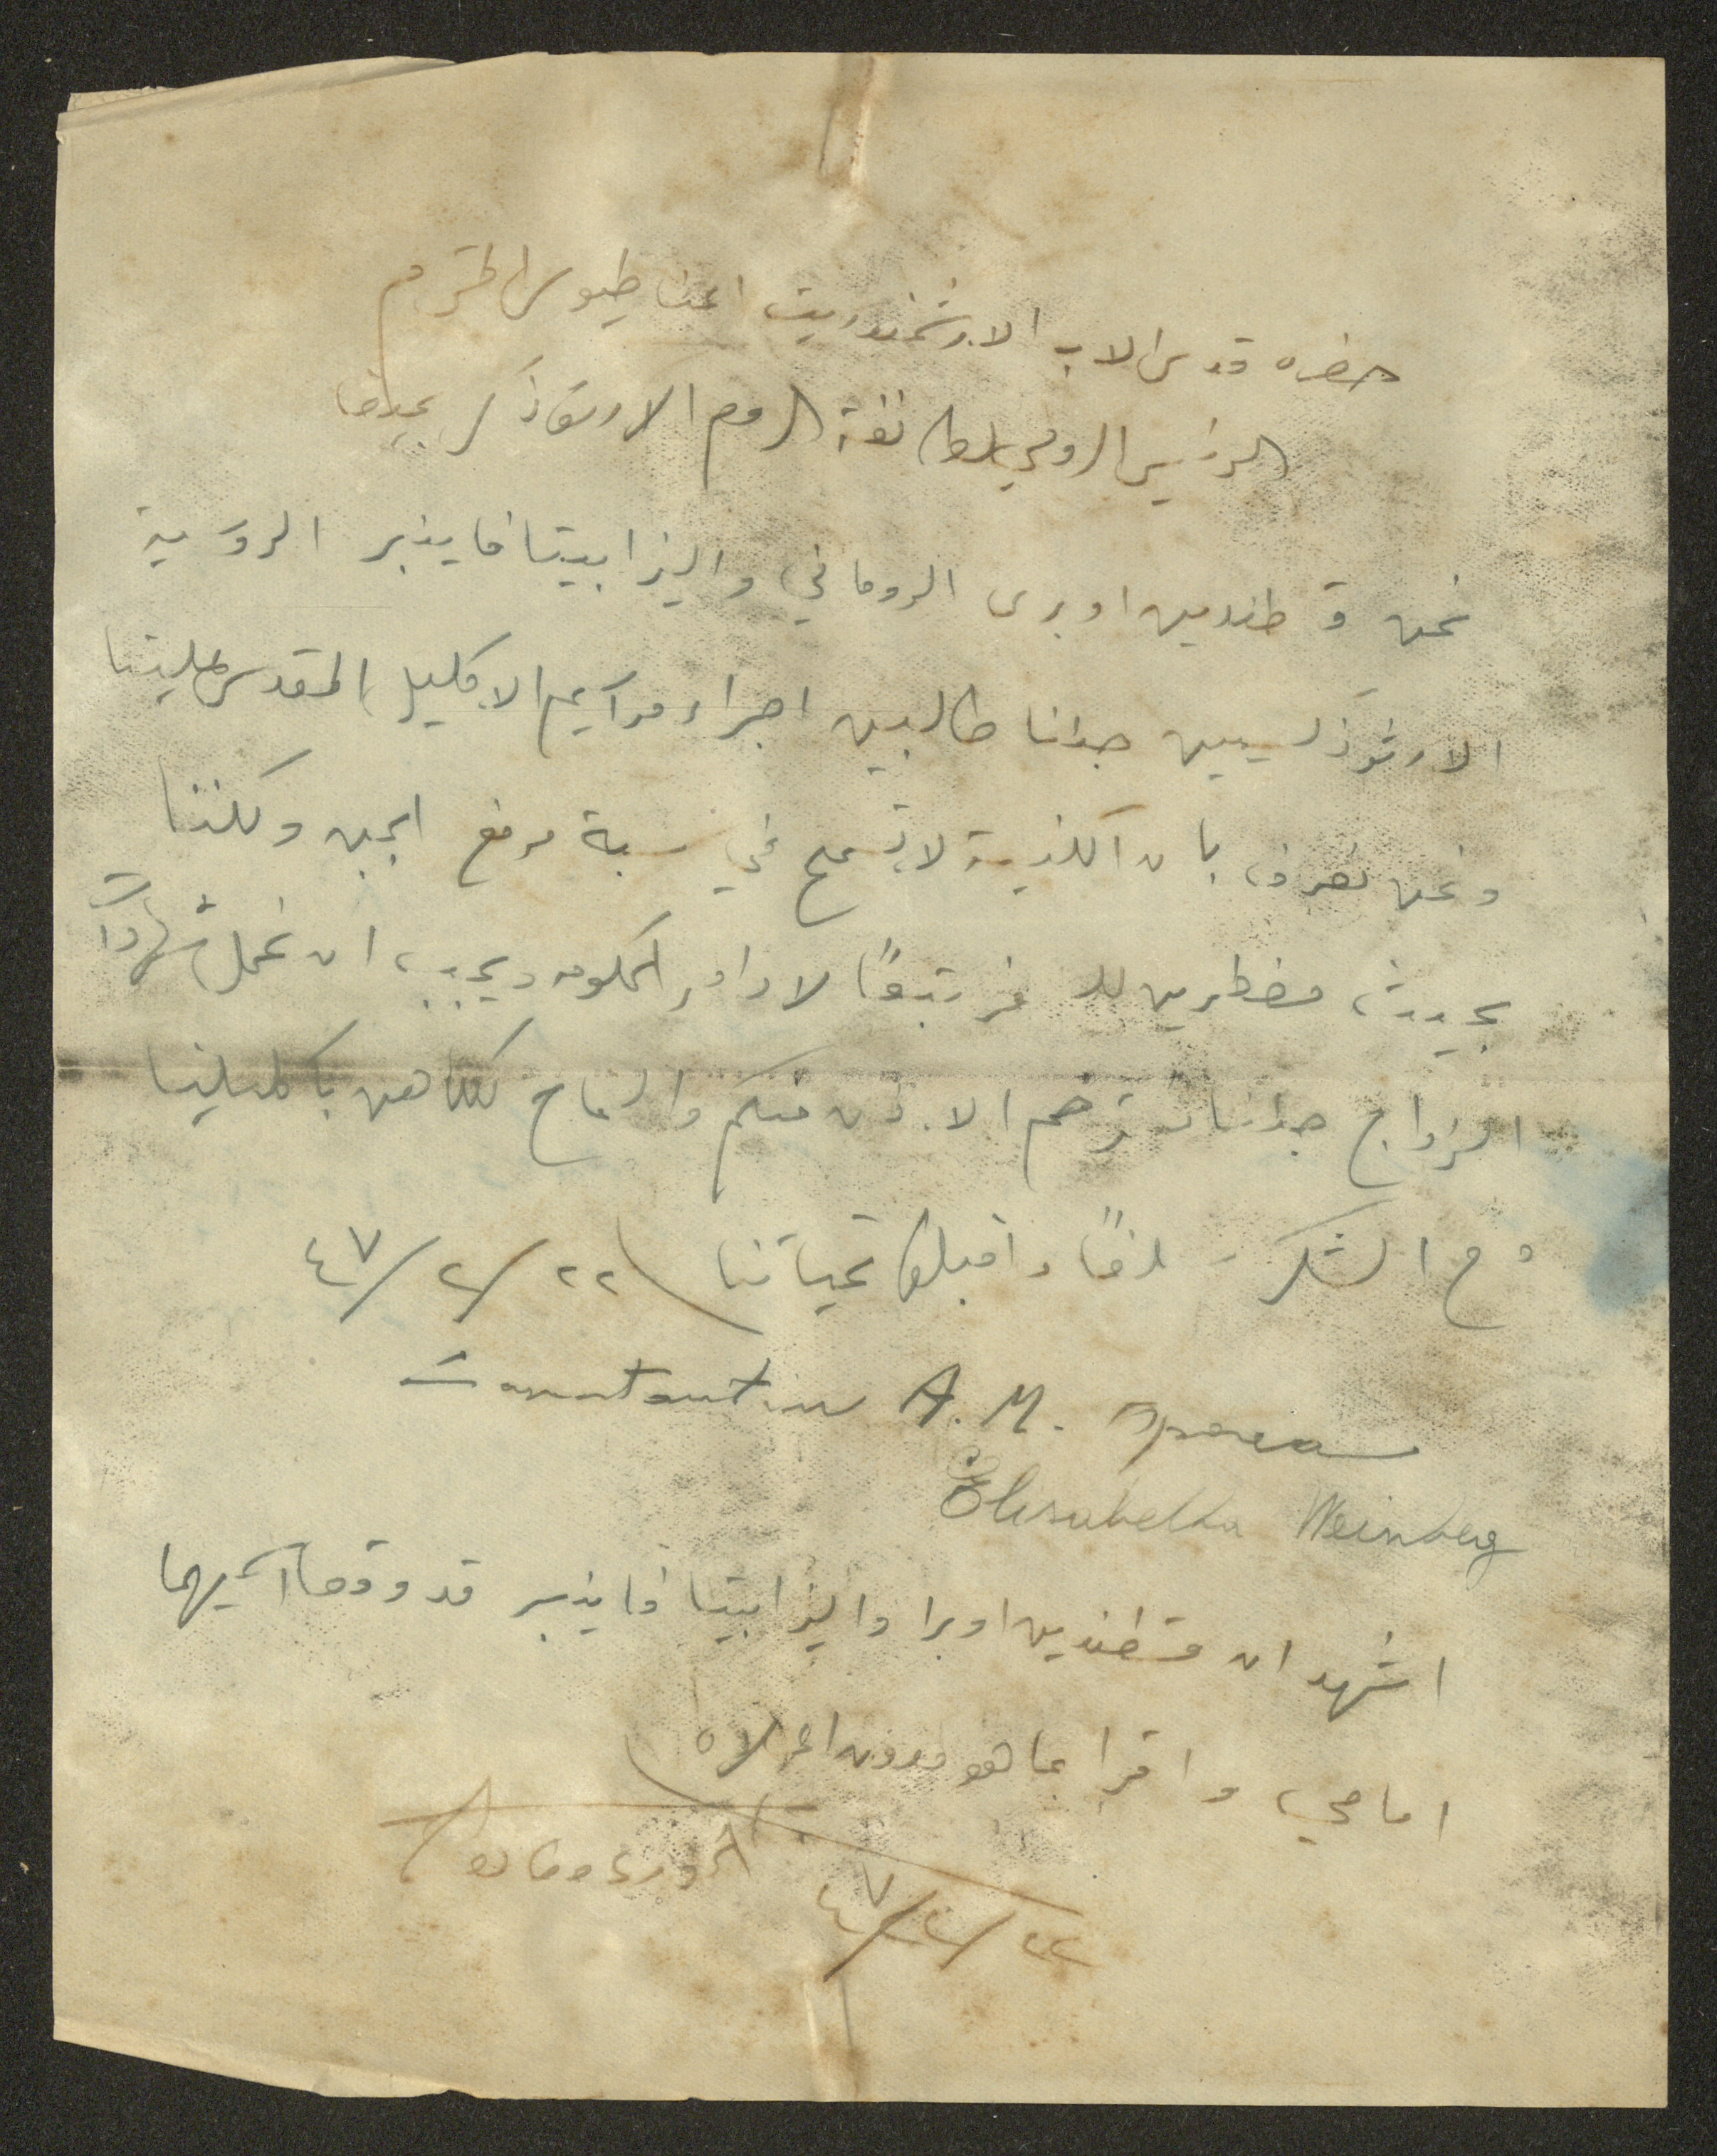 حضره قدس الاب الارشمندريت اغناطيوس المحترم
الرئيس الروحي لطائفة الروم الارثوذكس بحيفا
نحن قسطندين اوبرى الروماني واليزابيتا فاينبر الروسية
الارثوذكسيين جئنا طالبين اجراء مراسيم الاكليل المقدس علينا
ونحن نعرف بان الكنيسة لا تسمح في سبة مرفع الجبن ولكننا
بحيث مضطرين للسفر تبعًا لاوامر الحكومه ويجب ان نحمل شهادة
الزواج جئنا نسترحم الاذن منكم والسماح للكاهن بتكليلنا
مع الشكر سلفًا واقبلوا تحياتنا ٢٢/٢/٤٧
Constantin A. M. Oprea
Elisabetta Weinberg
اشهد ان قسطندين اوبرا واليزابيتا فاينبر قد وقعا اسميهما
امامي واقرا بما هو مدون اعلاه
الخوري
٢٢/٢/٤٧